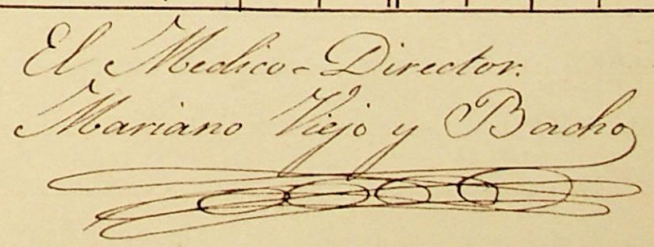 El Medico-Director.
Mariano Viejo y Bacho